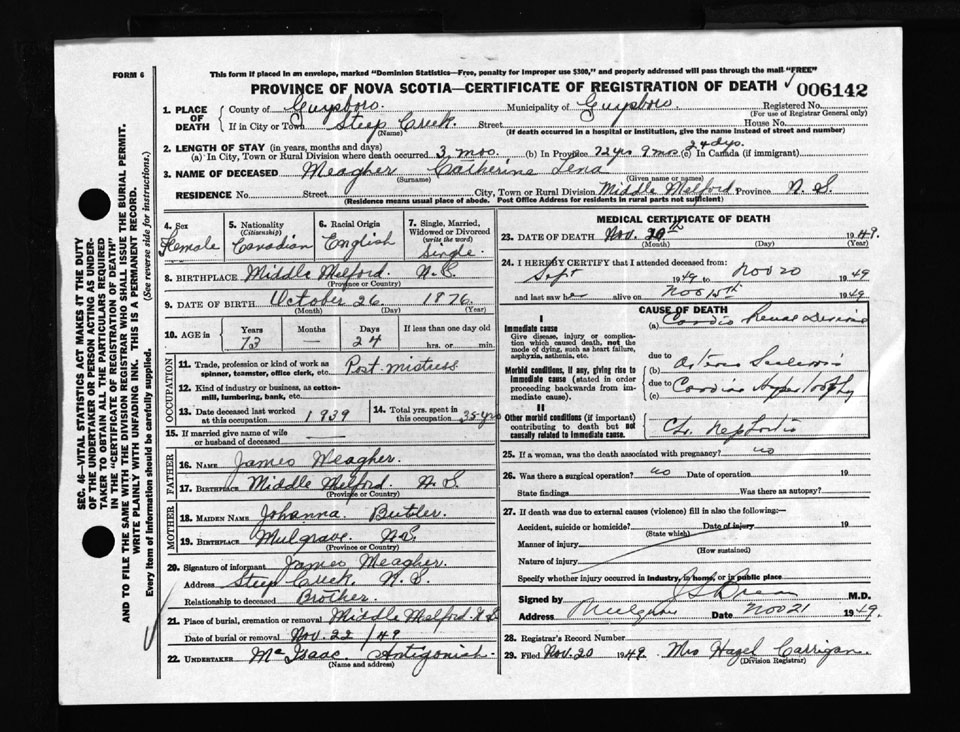 FORM 6
This form if placed in an envelope, marked "Dominion Statistics—Free, penalty for improper use $300," and properly addressed will pass through the mail "FREE"
PROVINCE OF NOVA SCOTIA—CERTIFICATE OF REGISTRATION OF DEATH 006142
1. PLACE OF DEATH County of Guysboro. Municipality of Guysboro. Registered No.
(For use of Registrar General only)
If in City or Town Steep Creek. Street House No.
(Name) (If death occurred in a hospital or institution, give the name instead of street and number)
2. LENGTH OF STAY (in years, months and days)
(a) In City, Town or Rural Division where death occurred 3 mos. (b) In Province 72 yrs 9 mos 24 dys. (c) In Canada (if immigrant)
3. NAME OF DECEASED Meagher Catherine Lena
(Surname) (Given name or names)
RESIDENCE No. Street City, Town or Rural Division Middle Melford Province N. S.
(Residence means usual place of abode. Post Office Address for residents in rural parts not sufficient)
4. Sex Female
5. Nationality (Citizenship) Canadian
6. Racial Origin English
7. Single, Married, Widowed or Divorced (write the word) Single.
8. BIRTHPLACE Middle Melford. N. S.
(Province or Country)
9. DATE OF BIRTH October 26 1876.
(Month) (Day) (Year)
10. AGE in Years 73 Months — Days 24 If less than one day old hrs. or min.
OCCUPATION
11. Trade, profession or kind of work as spinner, teamster, office clerk, etc. Post mistress
12. Kind of industry or business, as cotton-mill, lumbering, bank, etc.
13. Date deceased last worked at this occupation 1939
14. Total yrs. spent in this occupation 35 yrs
15. If married give name of wife or husband of deceased
FATHER
16. NAME James Meagher.
17. BIRTHPLACE Middle Melford. N. S.
(Province or Country)
MOTHER
18. MAIDEN NAME Johanna Butler.
19. BIRTHPLACE Mulgrave N.S.
(Province or Country)
20. Signature of informant James Meagher.
Address Steep Creek. N. S.
Relationship to deceased Brother.
21. Place of burial, cremation or removal Middle Melford N.S.
Date of burial or removal Nov. 22 / 49
22. UNDERTAKER Mc Isaac Antigonish.
(Name and address)
MEDICAL CERTIFICATE OF DEATH
23. DATE OF DEATH Nov. 20th 1949.
(Month) (Day) (Year)
24. I HEREBY CERTIFY that I attended deceased from:
Sept 1949 to Nov 20 1949
and last saw her alive on Nov 15th 1949
CAUSE OF DEATH
I
Immediate cause
Give disease, injury or complication which caused death, not the mode of dying, such as heart failure, asphyxia, asthenia, etc.
(a) Cardio Renal Disease
Morbid conditions, if any, giving rise to immediate cause (stated in order proceeding backwards from immediate cause).
due to
(b)
due to
(c) Cardiac
II
Other morbid conditions (if important) contributing to death but not causally related to immediate cause.
Chr.
25. If a woman, was the death associated with pregnancy? no
26. Was there a surgical operation? no Date of operation 19
State findings Was there an autopsy?
27. If death was due to external causes (violence) fill in also the following:—
Accident, suicide or homicide? Date of injury 19
(State which)
Manner of injury
(How sustained)
Nature of injury
Specify whether injury occurred in industry, in home, or in public place
Signed by M.D.
Address Mulgrave Date Nov 21 1949.
28. Registrar's Record Number
29. Filed Nov. 20 1949 Mrs Hazel Carrigan.
(Division Registrar)
SEC. 46—VITAL STATISTICS ACT MAKES IT THE DUTY
OF THE UNDERTAKER OR PERSON ACTING AS UNDER-
TAKER TO OBTAIN ALL THE PARTICULARS REQUIRED
IN THE "CERTIFICATE OF REGISTRATION OF DEATH"
AND TO FILE THE SAME WITH THE DIVISION REGISTRAR WHO SHALL ISSUE THE BURIAL PERMIT.
WRITE PLAINLY WITH UNFADING INK. THIS IS A PERMANENT RECORD.
Every item of information should be carefully supplied. (See reverse side for instructions.)